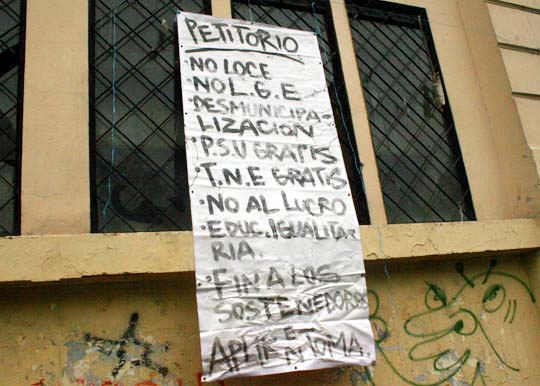 PETITORIO
·NO LOCE
·NO L.G.E
·DESMUNICIPA-
LIZACIÓN
·P.S.U GRATIS
·T.N.E GRATIS
·NO AL LUCRO
·EDUC. IGUALITA-
RIA.
·FIN A LOS
SOSTENEDORES